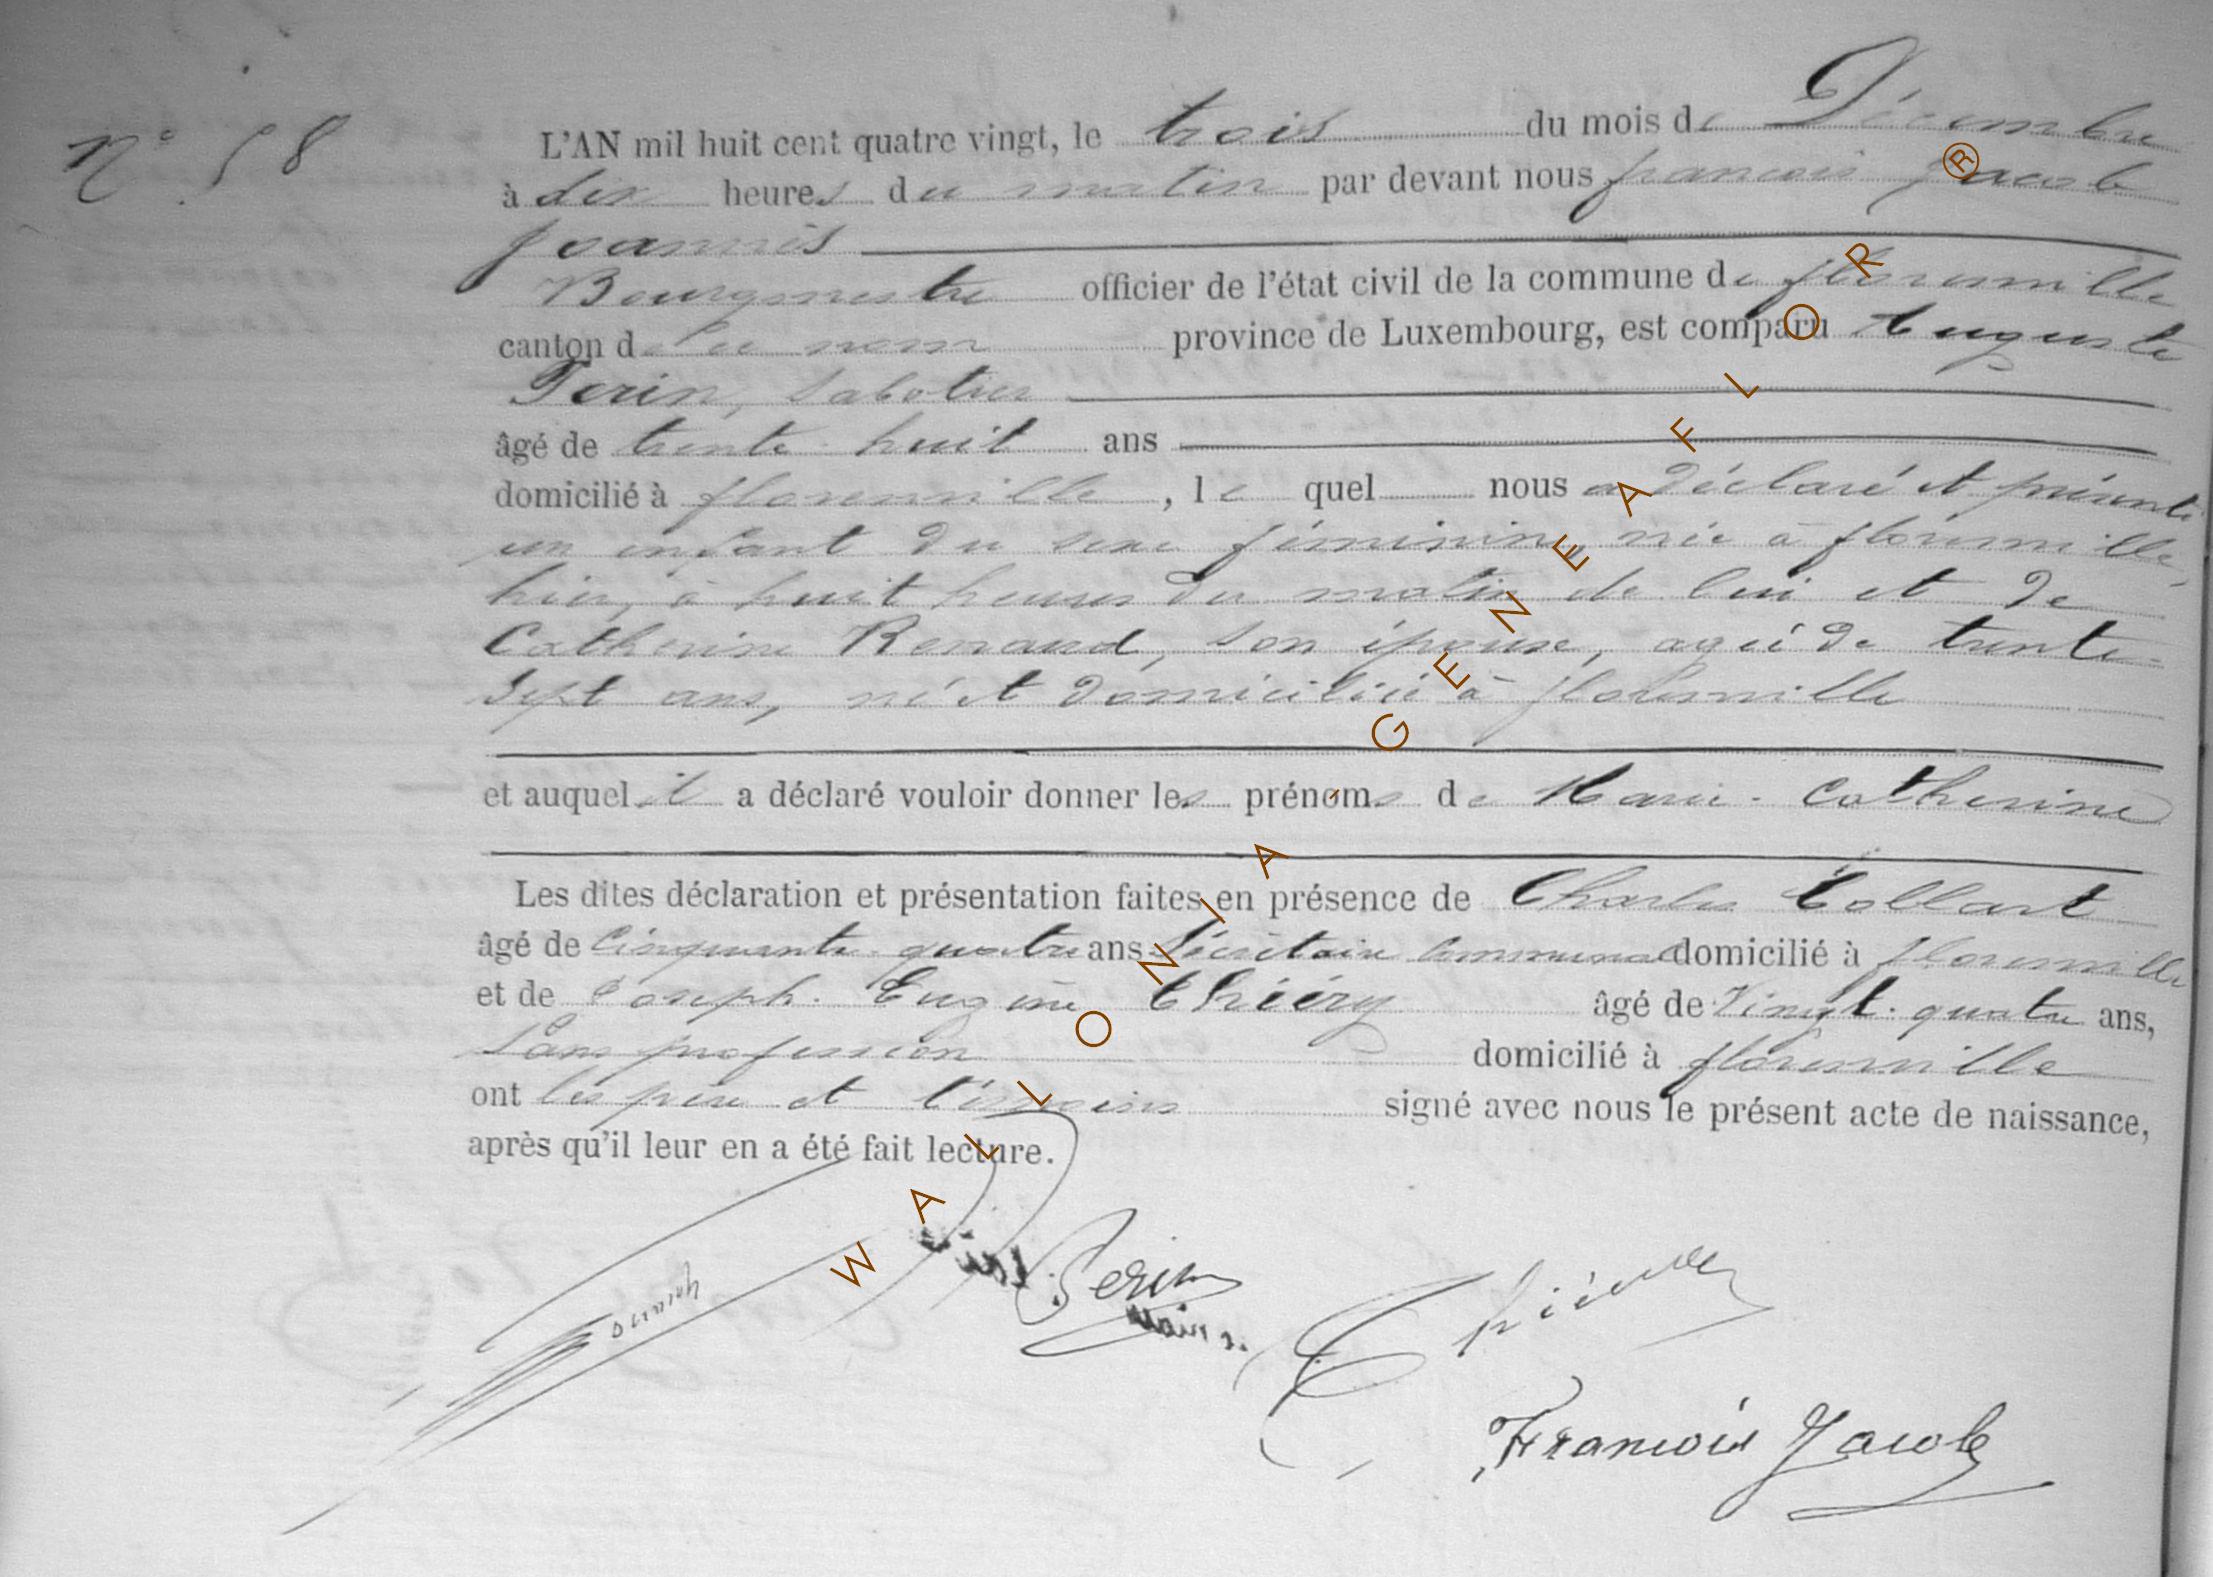 N° 58
L'AN mil huit cent quatre vingt, le trois du mois de Décembre
à dix heures du matin par devant nous francois Jacob
Joannès
Bourgmestre officier de l'état civil de la commune de florenville
canton de ce nom province de Luxembourg, est comparu Auguste
Perin, sabotier
âgé de trente huit ans
domicilié à florenville, le quel nous a déclaré et présenté
un enfant du sexe féminin, née à florenville,
hier, à huit heures du matin de lui et de
Catherine Renaud, son épouse, agée de trente-
sept ans, née et domiciliée à florenville
et auquel il a déclaré vouloir donner les prénoms de Marie-Catherine
Les dites déclaration et présentation faites en présence de Charles Collart
âgé de Cinquante-quatre ans Secrétaire Communal domicilié à florenville
et de Joseph-Eugène Thiéry âgé de Vingt-quatre ans,
Sans profession domicilié à florenville
ont les père et témoins signé avec nous le présent acte de naissance,
après qu'il leur en a été fait lecture.
Perin
Francois Jacob
WALLONIA GENEAFLOR ®